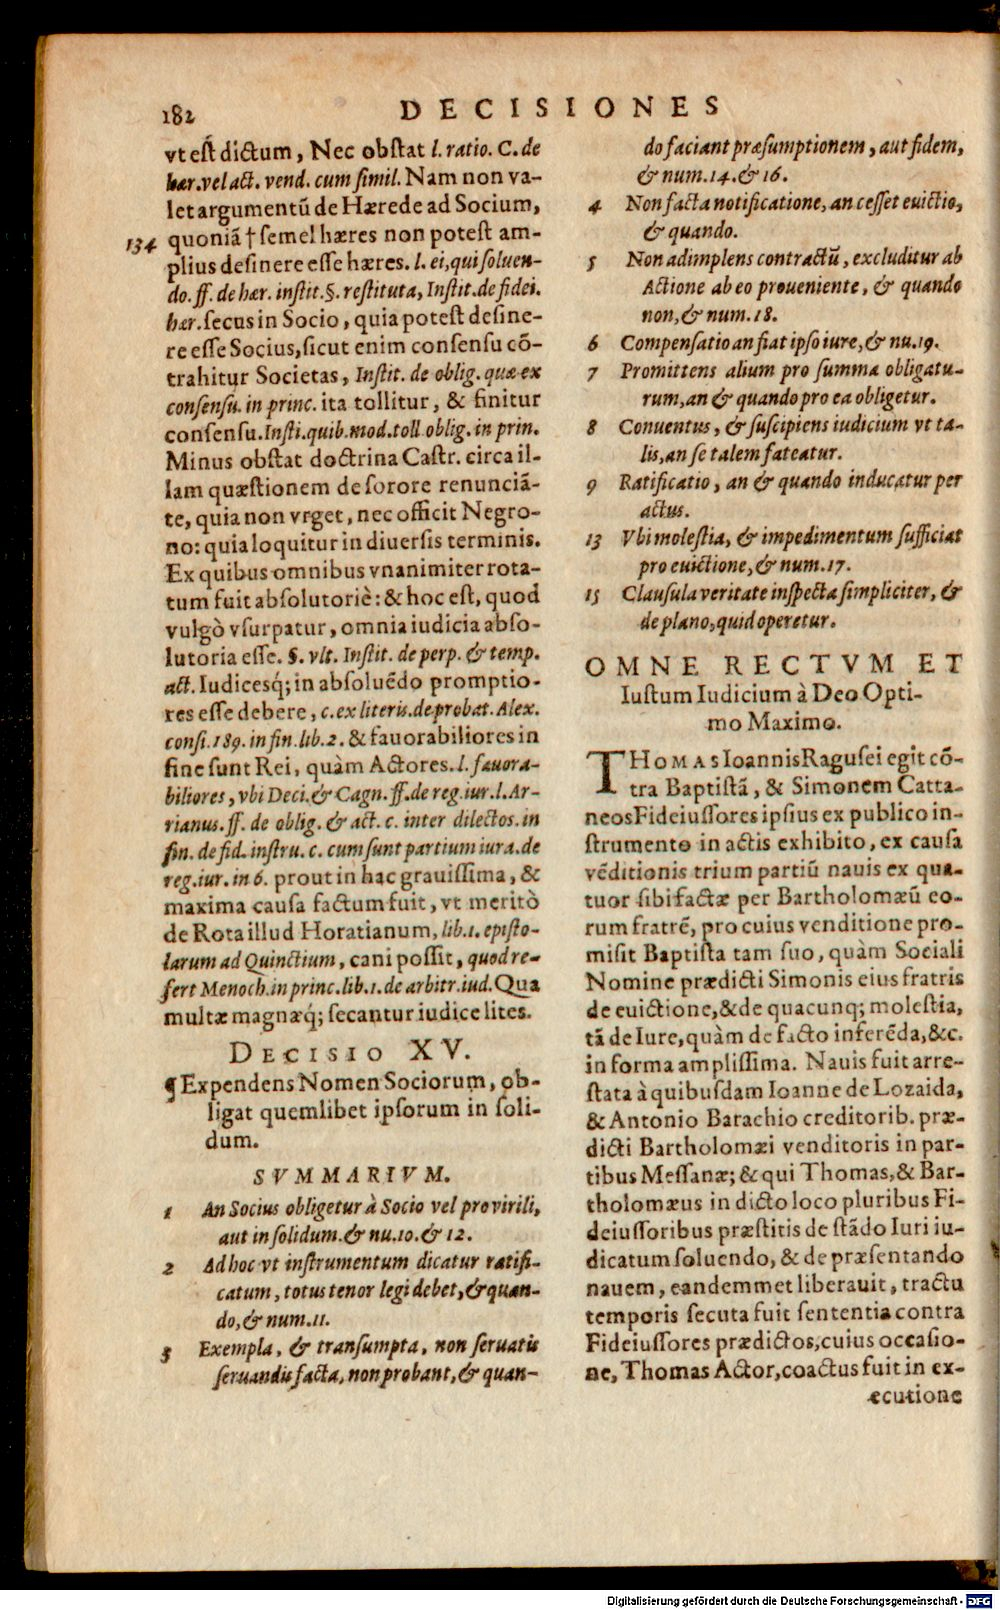 182
DECISIONES
vt est dictum, Nec obstat l. ratio. C. de
hær. vel act. vend. cum simil. Nam non va-
let argumentū de Hærede ad Socium,
134 quoniā † semel hæres non potest am-
plius desinere esse hæres. l. ei, qui soluen-
do. ff. de hær. instit. §. restituta, Instit. de fidei.
hær. secus in Socio, quia potest desine-
re esse Socius, sicut enim consensu cō-
trahitur Societas, Instit. de oblig. quæ ex
consensu. in princ. ita tollitur, & finitur
consensu. Insti. quib. mod. toll. oblig. in prin.
Minus obstat doctrina Castr. circa il-
lam quæstionem de sorore renunciā-
te, quia non vrget, nec officit Negro-
no: quia loquitur in diuersis terminis.
Ex quibus omnibus vnanimiter rota-
tum fuit absolutoriè: & hoc est, quod
vulgò vsurpatur, omnia iudicia abso-
lutoria esse. §. vlt. Instit. de perp. & temp.
act. Iudicesq́; in absoluēdo promptio-
res esse debere, c. ex literis. de probat. Alex.
consi. 189. in fin. lib. 2. & fauorabiliores in
fine sunt Rei, quàm Actores. l. fauora-
biliores, vbi Deci. & Cagn. ff. de reg. iur. l. Ar-
rianus. ff. de oblig. & act. c. inter dilectos. in
fin. de fid. instru. c. cum sunt partium iura. de
reg. iur. in 6. prout in hac grauissima, &
maxima causa factum fuit, vt meritò
de Rota illud Horatianum, lib. 1. episto-
larum ad Quinctium, cani possit, quod re-
fert Menoch. in princ. lib. 1. de arbitr. iud. Qua
multæ magnæq́; secantur iudice lites.
DECISIO XV.
¶ Expendens Nomen Sociorum, ob-
ligat quemlibet ipsorum in soli-
dum.
SVMMARIVM.
1 An Socius obligetur à Socio vel pro virili,
aut in solidum. & nu. 10. & 12.
2 Ad hoc vt instrumentum dicatur ratifi-
catum, totus tenor legi debet, & quan-
do, & num. 11.
3 Exempla, & transumpta, non seruatis
seruandis facta, non probant, & quan-
do faciant præsumptionem, aut fidem,
& num. 14. & 16.
4 Non facta notificatione, an cesset euictio,
& quando.
5 Non adimplens contractū, excluditur ab
Actione ab eo proueniente, & quando
non, & num. 18.
6 Compensatio an fiat ipso iure, & nu. 19.
7 Promittens alium pro summa obligatu-
rum, an & quando pro ea obligetur.
8 Conuentus, & suscipiens iudicium vt ta-
lis, an se talem fateatur.
9 Ratificatio, an & quando inducatur per
actus.
13 Vbi molestia, & impedimentum sufficiat
pro euictione, & num. 17.
15 Clausula veritate inspecta simpliciter, &
de plano, quid operetur.
OMNE RECTVM ET
Iustum Iudicium à Deo Opti-
mo Maximo.
THOMAS Ioannis Ragusei egit cō-
tra Baptistā, & Simonem Catta-
neos Fideiussores ipsius ex publico in-
strumento in actis exhibito, ex causa
vēditionis trium partiū nauis ex qua-
tuor sibi factæ per Bartholomæū eo-
rum fratrē, pro cuius venditione pro-
misit Baptista tam suo, quàm Sociali
Nomine prædicti Simonis eius fratris
de euictione, & de quacunq; molestia,
tā de Iure, quàm de facto inferēda, &c.
in forma amplissima. Nauis fuit arre-
stata à quibusdam Ioanne de Lozaida,
& Antonio Barachio creditorib. præ-
dicti Bartholomæi venditoris in par-
tibus Messanæ; & qui Thomas, & Bar-
tholomæus in dicto loco pluribus Fi-
deiussoribus præstitis de stādo Iuri iu-
dicatum soluendo, & de præsentando
nauem, eandemmet liberauit, tractu
temporis secuta fuit sententia contra
Fideiussores prædictos, cuius occasio-
ne, Thomas Actor, coactus fuit in ex-
ecutione
Digitalisierung gefördert durch die Deutsche Forschungsgemeinschaft - DFG